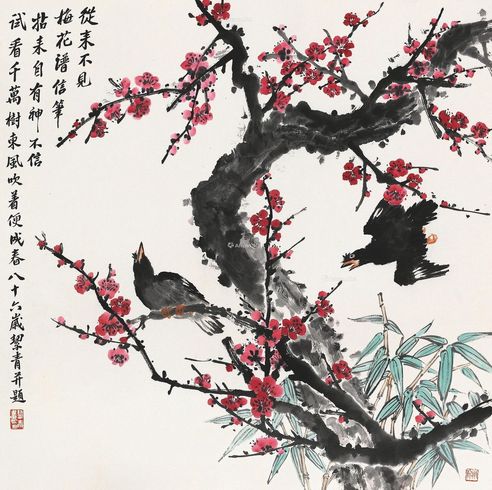 從来不見
梅花譜信筆
拈来自有神不信
試看千萬樹東風吹着便成春八十六歲挈青并題